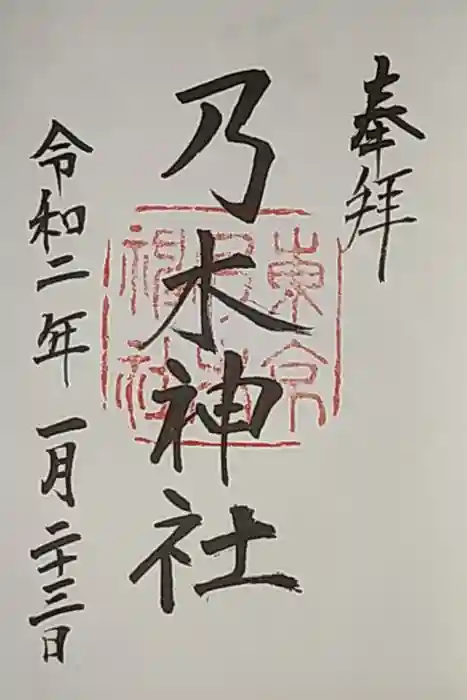 奉拝
乃木神社
東京
乃木
神社
令和二年一月二十三日